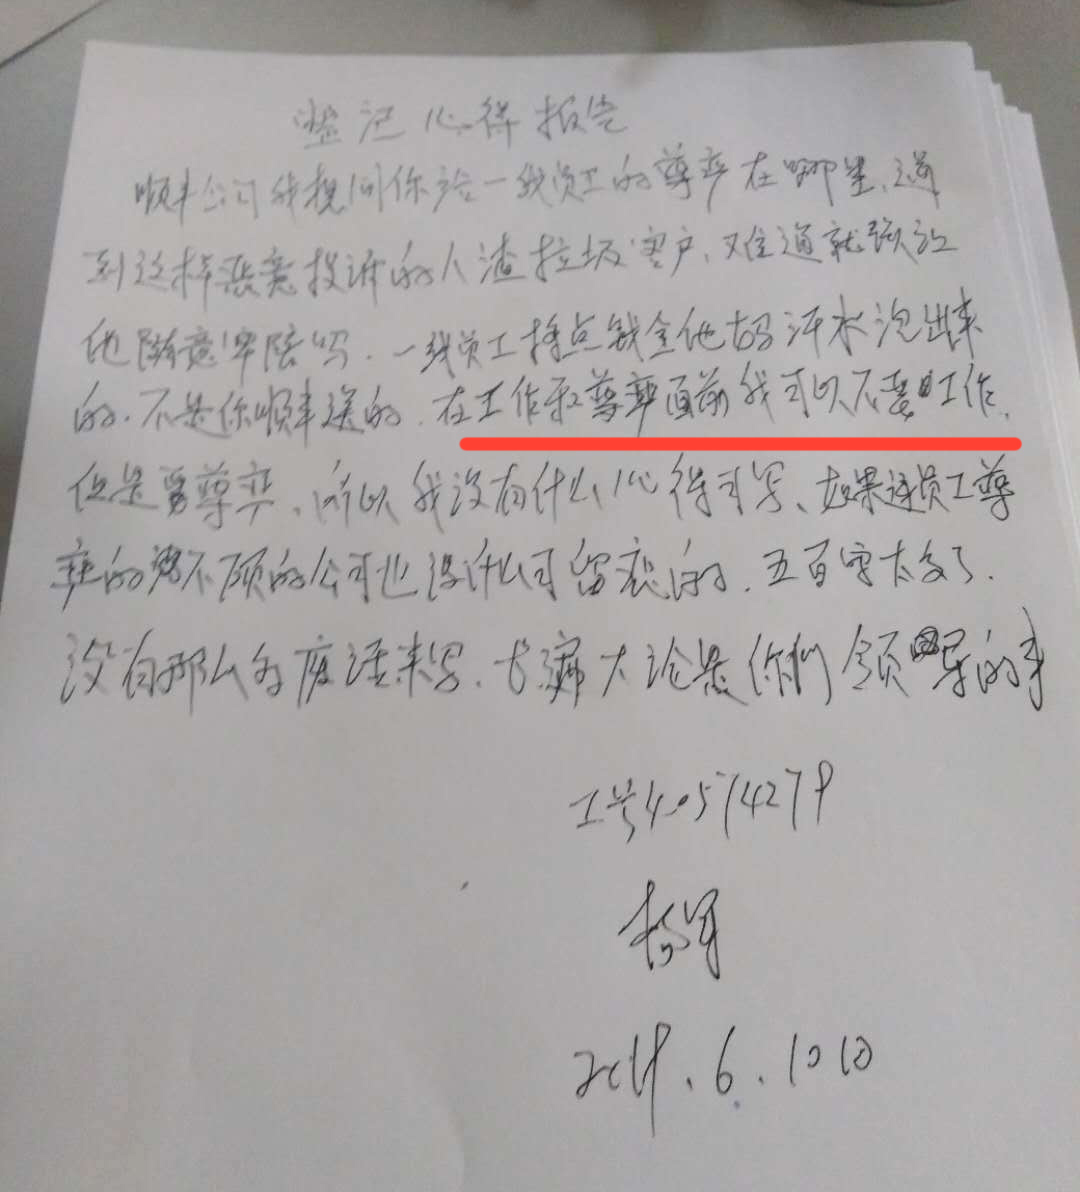 心得报告
顺丰公司我想问你给一线员工的尊严在哪里、遇
到这样恶意投诉的人渣垃圾客户、难道就该让
他随意 吗.一线员工挣点钱全他妈汗水泡出来
的.不是你顺丰送的.在工作和尊严面前我可以不要工作、
但是要尊严、所以我没有什么心得可写、如果连员工尊
严的都不顾的公司也没什么可留恋的.五百字太多了.
没有那么多废话来写.长篇大论是你们领导的事
工号40574279
杨军
6.10日